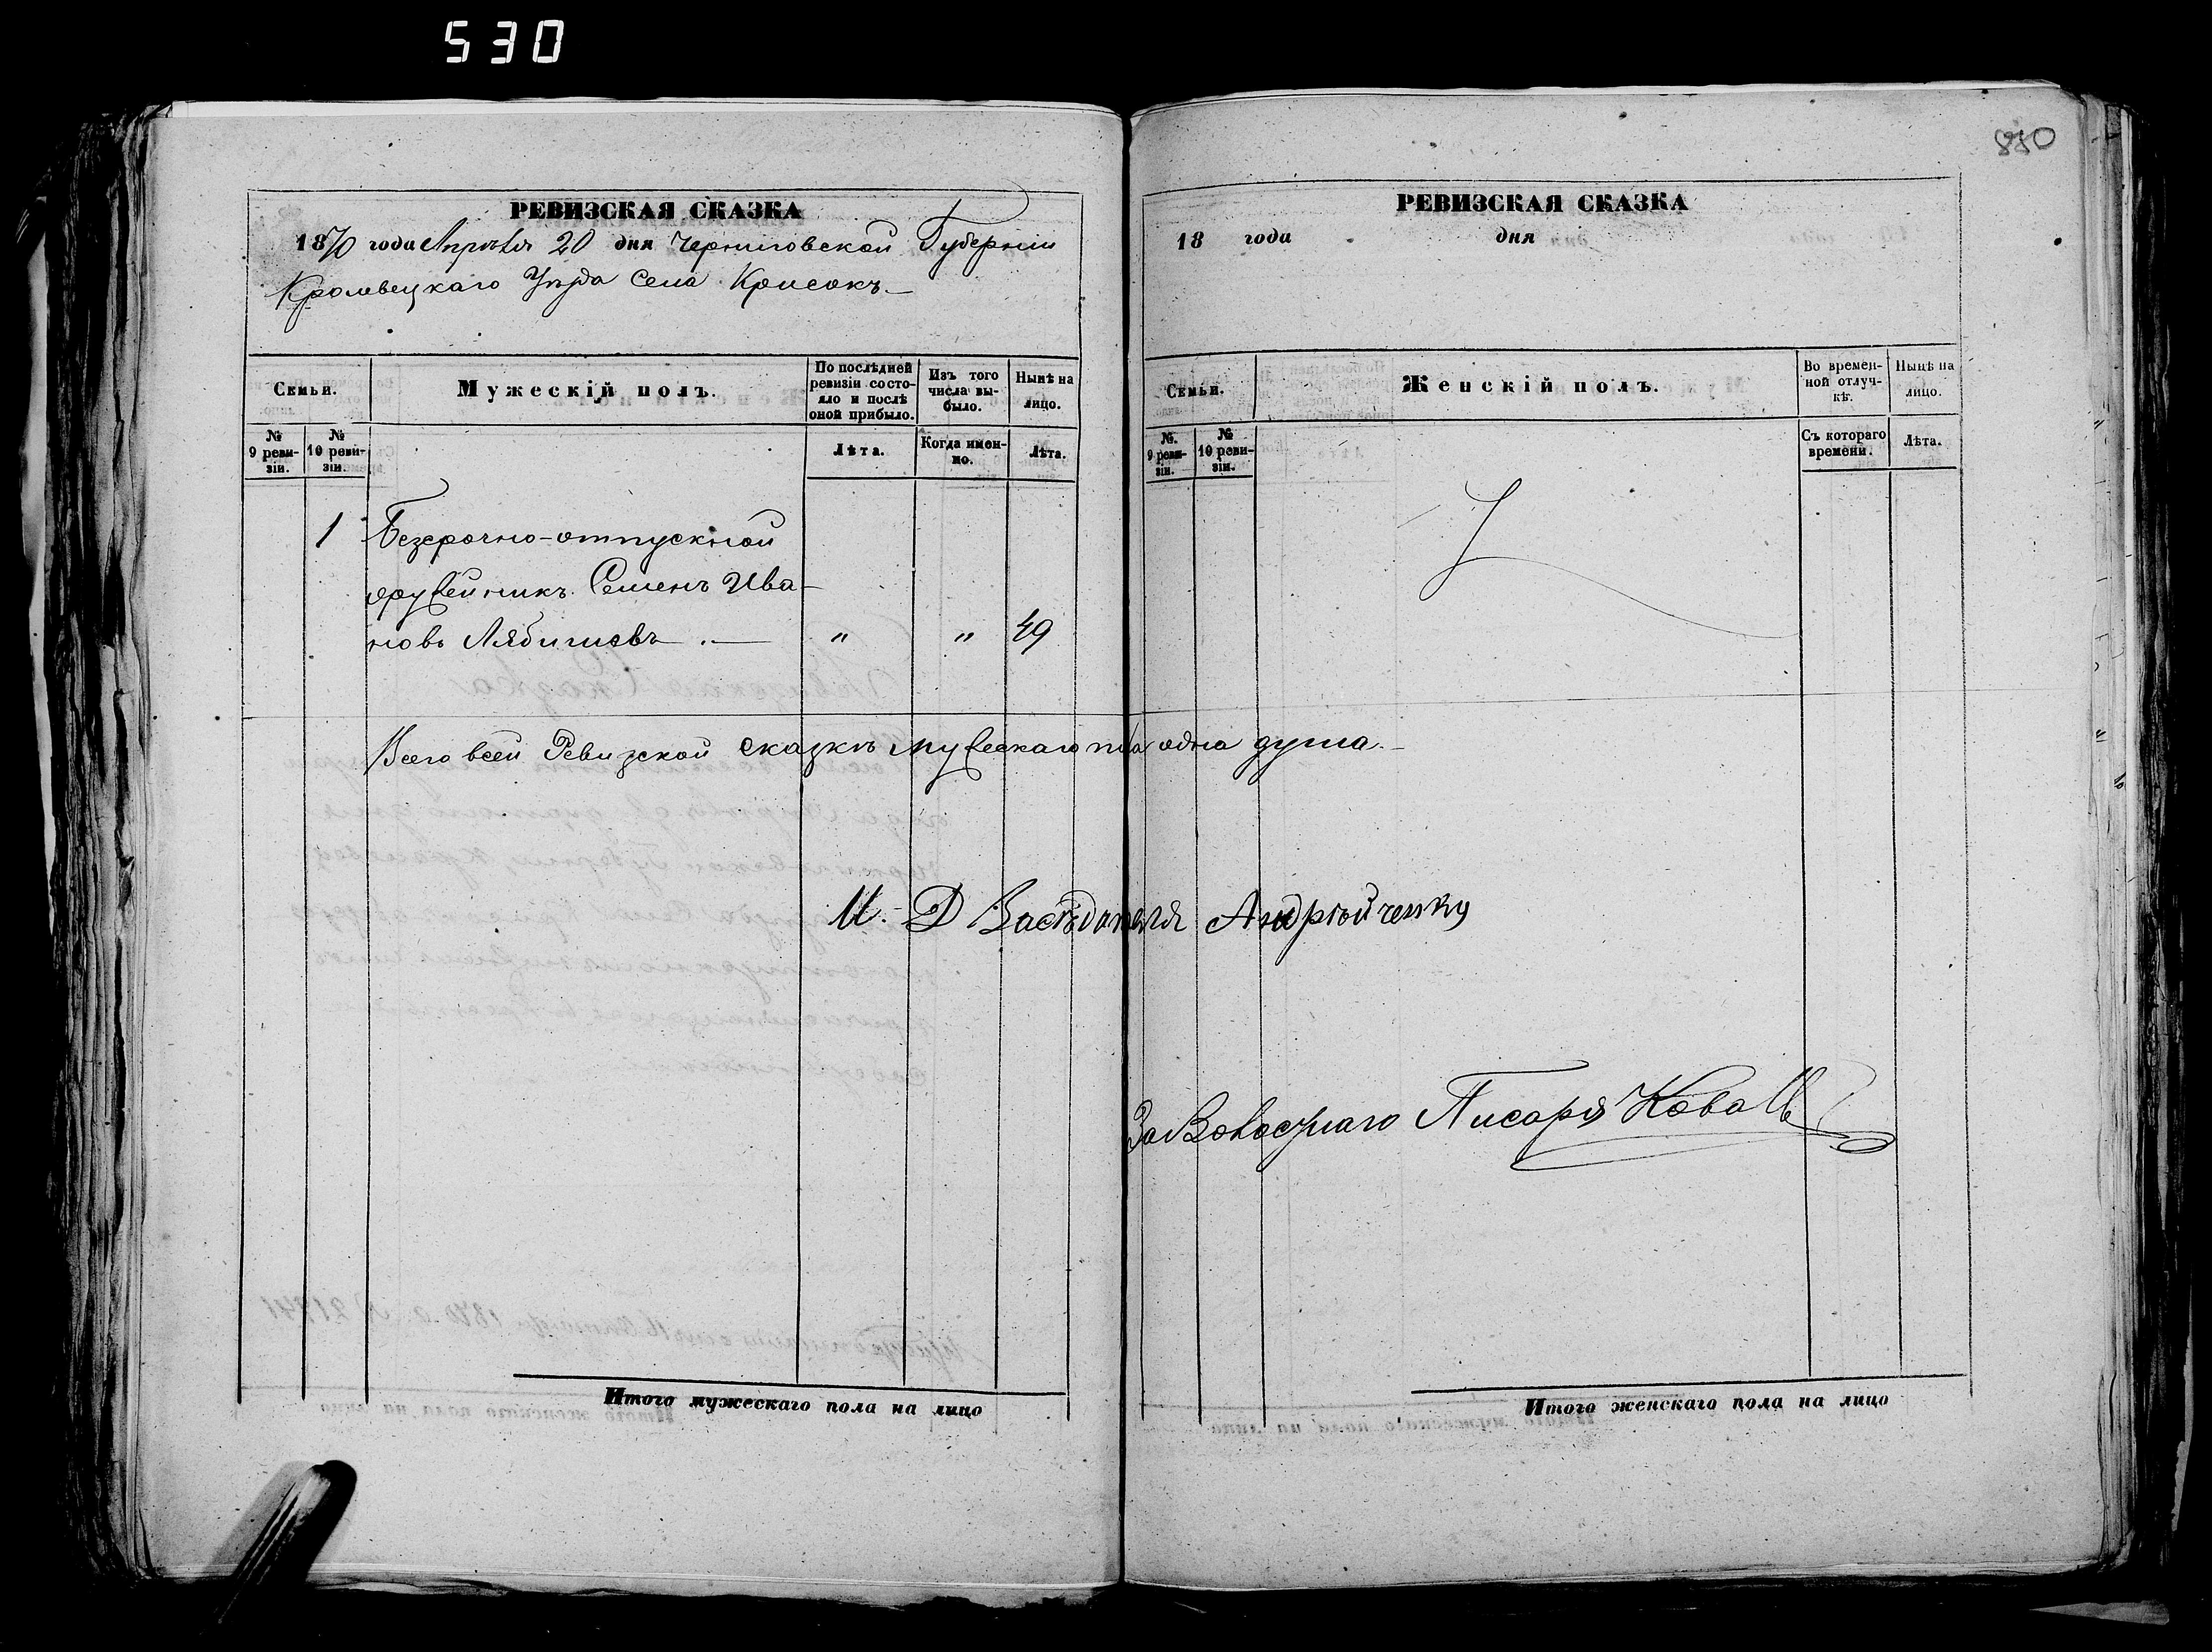 530
850
РЕВИЗСКАЯ СКАЗКА
1870 года Апрѣля 20 дня Черниговской Губерніи
Кролевецкаго Уѣзда Села Крисокъ
Семьи.
Мужескій полъ.
По послѣдней ревизіи состояло и послѣ оной прибыло.
Изъ того числа выбыло.
Нынѣ на лицо.
№ 9 ревизіи.
№ 10 ревизіи.
Лѣта.
Когда именно.
Лѣта.
1 Безсрочно-отпускной
Семенъ Ива-
новъ " " 49
Всего всей Ревизской сказкѣ мужескаго пола одна душа.
И. Д Засѣдателя Андрюйченку
РЕВИЗСКАЯ СКАЗКА
18 года дня
Семьи.
Женскій полъ.
Во временной отлучкѣ.
Нынѣ на лицо.
№. 9 ревизіи.
№ 10 ревизіи.
Съ котораго времени.
Лѣта.
За Волоснаго Писаря Коваль
Итого мужескаго пола на лицо
Итого женскаго пола на лицо